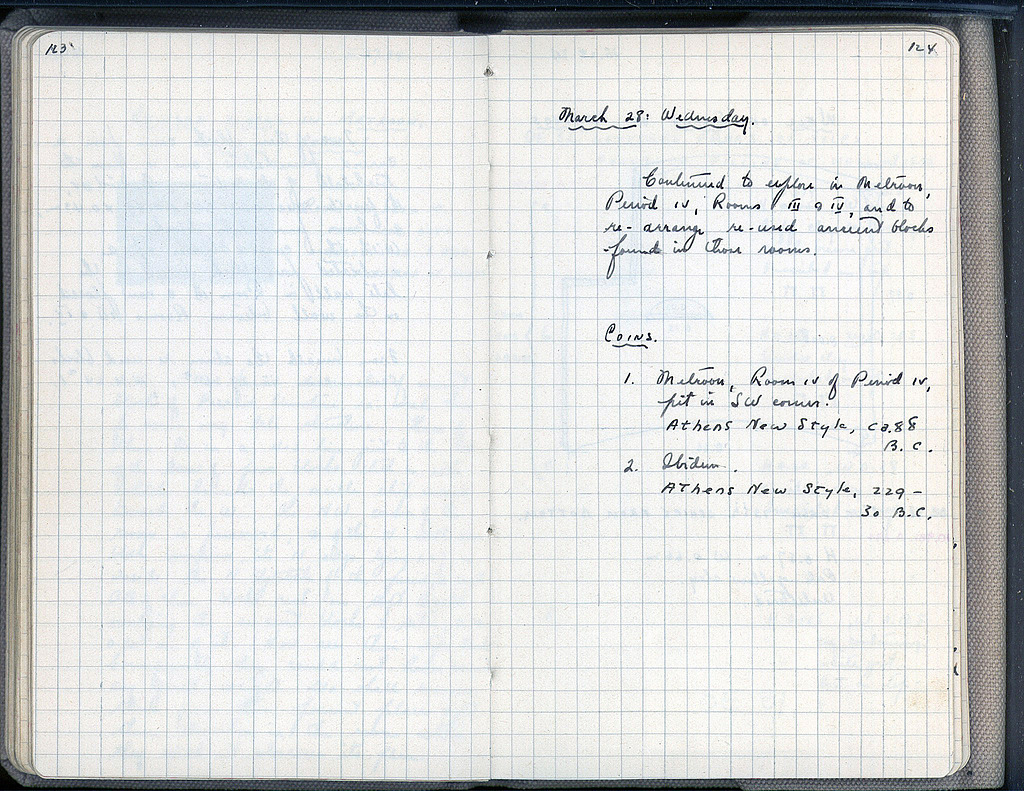 123
124
March 28: Wednesday.
Continued to explore in Metroon,
Period IV, Rooms III & IV, and to
re-arrange re-used ancient blocks
found in those rooms.
Coins.
1. Metroon, Room IV of Period IV,
pit in SW corner.
Athens New Style, ca. 88
B.C.
2. Ibidem.
Athens New Style, 229-
30 B.C.